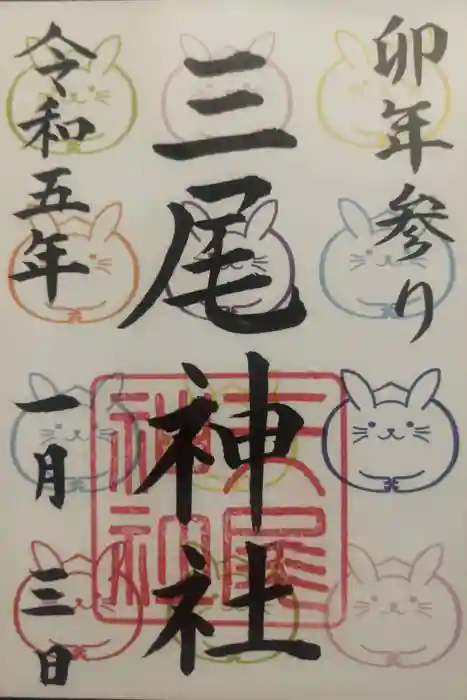 卯年参り
三尾神社
令和五年
一月三日